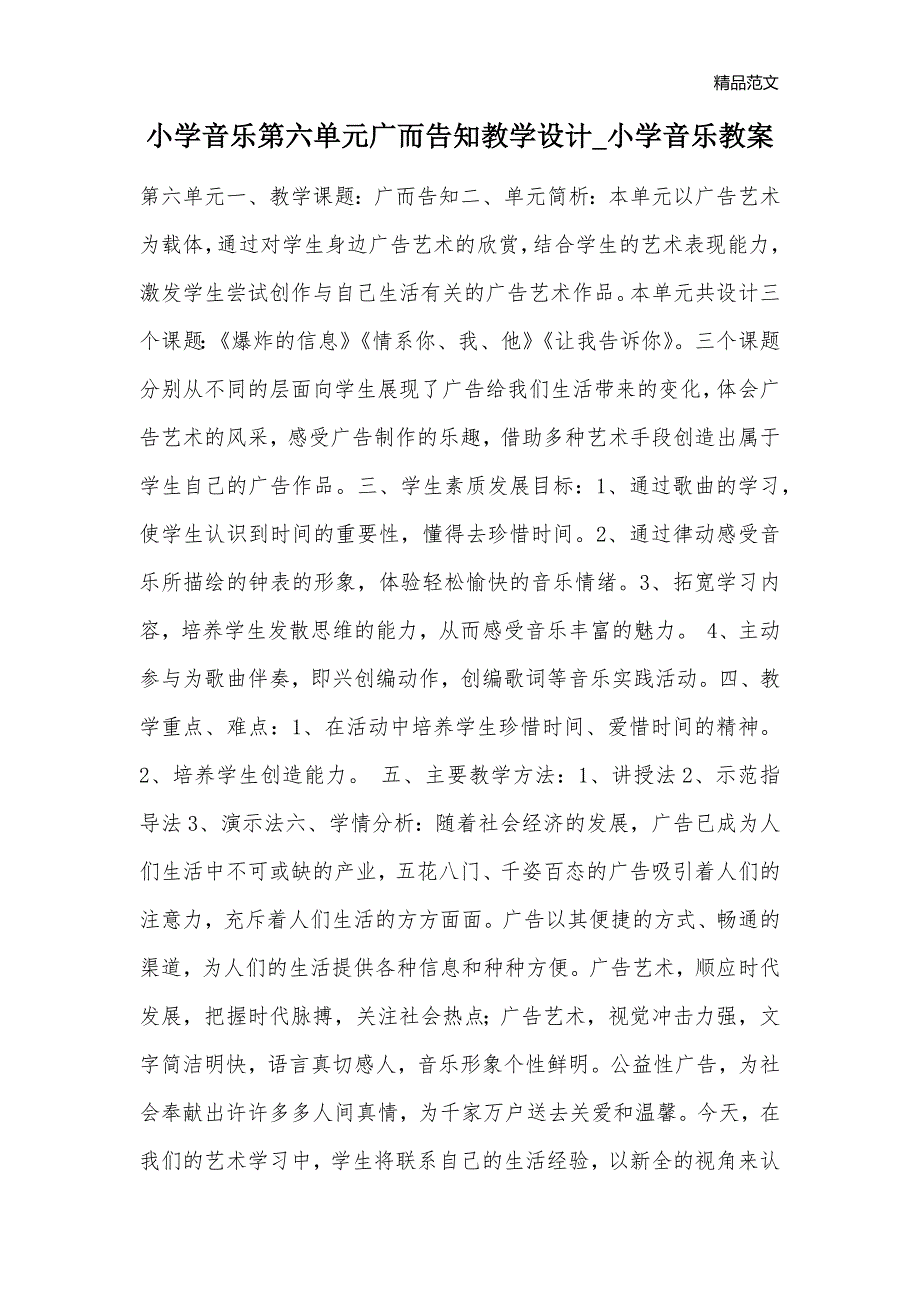 精品范文
小学音乐第六单元广而告知教学设计_小学音乐教案
第六单元一、教学课题：广而告知二、单元简析：本单元以广告艺术
为载体，通过对学生身边广告艺术的欣赏，结合学生的艺术表现能力，
激发学生尝试创作与自己生活有关的广告艺术作品。本单元共设计三
个课题：《爆炸的信息》《情系你、我、他》《让我告诉你》。三个课题
分别从不同的层面向学生展现了广告给我们生活带来的变化，体会广
告艺术的风采，感受广告制作的乐趣，借助多种艺术手段创造出属于
学生自己的广告作品。三、学生素质发展目标：1、通过歌曲的学习，
使学生认识到时间的重要性，懂得去珍惜时间。2、通过律动感受音
乐所描绘的钟表的形象，体验轻松愉快的音乐情绪。3、拓宽学习内
容，培养学生发散思维的能力，从而感受音乐丰富的魅力。 4、主动
参与为歌曲伴奏，即兴创编动作，创编歌词等音乐实践活动。四、教
学重点、难点：1、在活动中培养学生珍惜时间、爱惜时间的精神。
2、培养学生创造能力。 五、主要教学方法：1、讲授法2、示范指
导法3、演示法六、学情分析：随着社会经济的发展，广告已成为人
们生活中不可或缺的产业，五花八门、千姿百态的广告吸引着人们的
注意力，充斥着人们生活的方方面面。广告以其便捷的方式、畅通的
渠道，为人们的生活提供各种信息和种种方便。广告艺术，顺应时代
发展，把握时代脉搏，关注社会热点；广告艺术，视觉冲击力强，文
字简洁明快，语言真切感人，音乐形象个性鲜明。公益性广告，为社
会奉献出许许多多人间真情，为千家万户送去关爱和温馨。今天，在
我们的艺术学习中，学生将联系自己的生活经验，以新全的视角来认